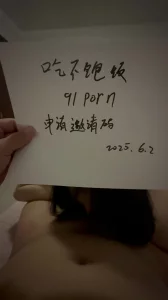 吃不饱饭
91 porn
申请邀请码
2025.6.2